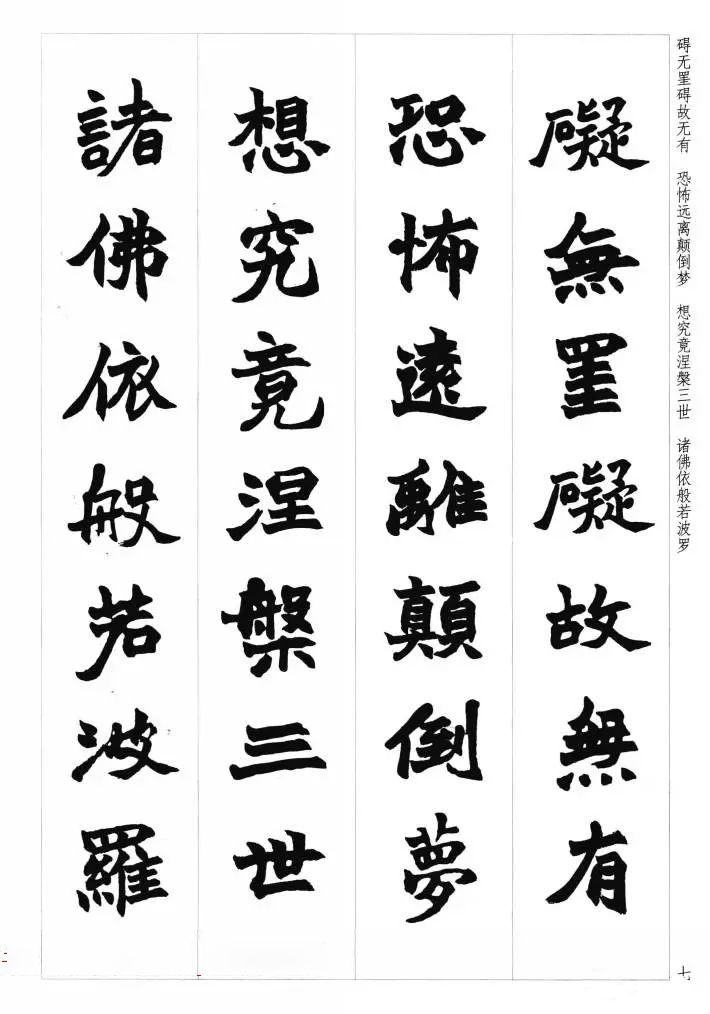 碍无罣碍故无有 恐怖远离颠倒梦 想究竟涅槃三世 诸佛依般若波罗
礙無罣礙故無有
恐怖遠離顛倒夢
想究竟涅槃三世
諸佛依般若波羅
七